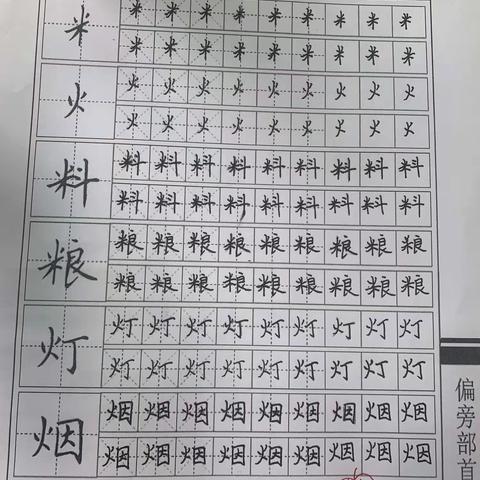 米
米米米米米米米米米
米米米米米米米米米
火
火火火火火火火火火
火火火火火火火火火
料
料料料料料料料料料
料料料料料料料料料
粮
粮粮粮粮粮粮粮粮粮
粮粮粮粮粮粮粮粮粮
灯
灯灯灯灯灯灯灯灯灯
灯灯灯灯灯灯灯灯灯
烟
烟烟烟烟烟烟烟烟烟
烟烟烟烟烟烟烟烟烟
偏旁部首